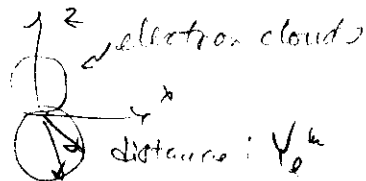 z
electron clouds
x
distance : Y_l^m